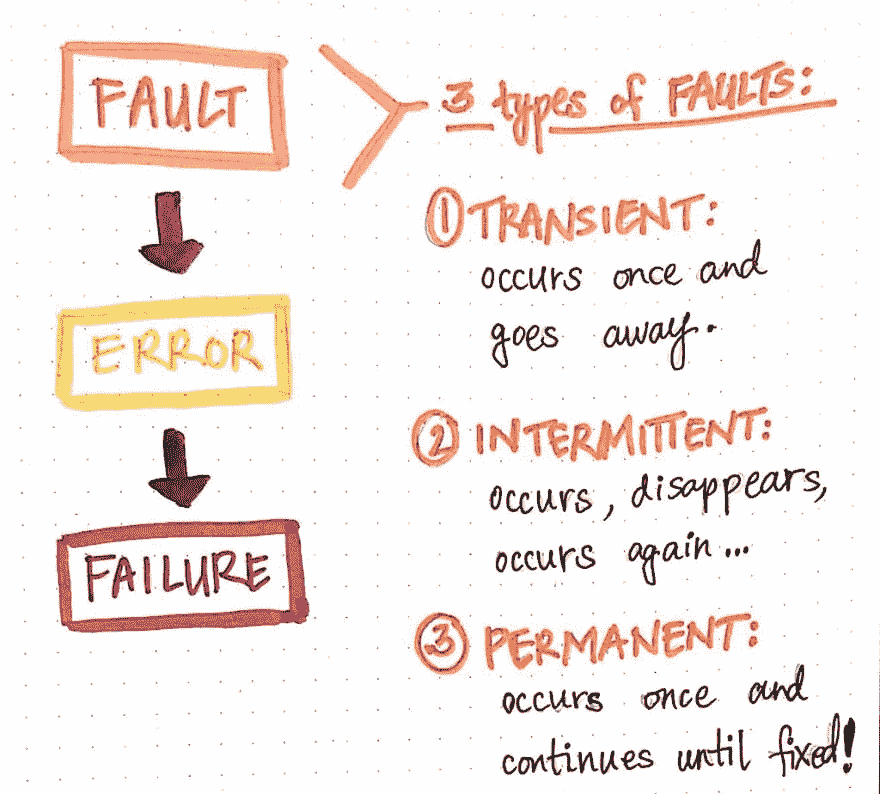 FAULT
ERROR
FAILURE
3 types of FAULTS:
① TRANSIENT:
occurs once and
goes away.
② INTERMITTENT:
occurs, disappears,
occurs again...
③ PERMANENT:
occurs once and
continues until fixed!